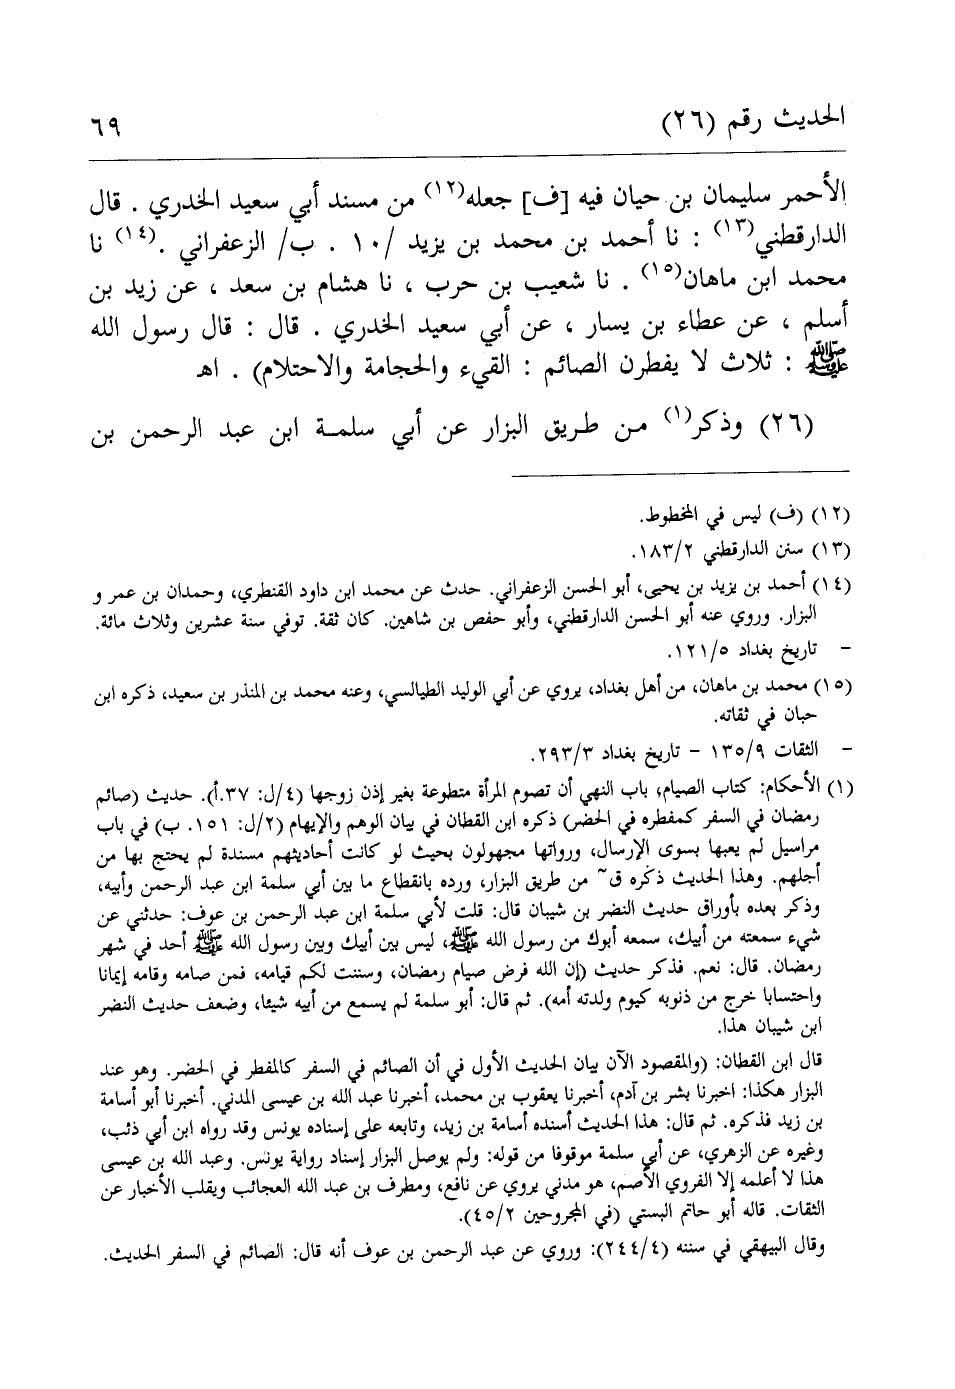 الحديث رقم (٢٦) ٦٩
الأحمر سليمان بن حيان فيه [ف] جعله(١٢) من مسند أبي سعيد الخدري . قال
الدارقطني(١٣) : نا أحمد بن محمد بن يزيد /١٠ . ب/ الزعفراني .(١٤) نا
محمد ابن ماهان(١٥) . نا شعيب بن حرب ، نا هشام بن سعد ، عن زيد بن
أسلم ، عن عطاء بن يسار ، عن أبي سعيد الخدري . قال : قال رسول الله
ﷺ : ثلاث لا يفطرن الصائم : القيء والحجامة والاحتلام) . اهـ
(٢٦) وذكر(١) من طريق البزار عن أبي سلمة ابن عبد الرحمن بن
(١٢) (ف) ليس في المخطوط.
(١٣) سنن الدارقطني ١٨٣/٢.
(١٤) أحمد بن يزيد بن يحيى، أبو الحسن الزعفراني. حدث عن محمد ابن داود القنطري، وحمدان بن عمر و
البزار. وروي عنه أبو الحسن الدارقطني، وأبو حفص بن شاهين. كان ثقة. توفي سنة عشرين وثلاث مائة.
- تاريخ بغداد ١٢١/٥.
(١٥) محمد بن ماهان، من أهل بغداد، يروي عن أبي الوليد الطيالسي، وعنه محمد بن المنذر بن سعيد، ذكره ابن
حبان في ثقاته.
- الثقات ١٣٥/٩ - تاريخ بغداد ٢٩٣/٣.
(١) الأحكام: كتاب الصيام، باب النهي أن تصوم المرأة متطوعة بغير إذن زوجها (٤/ل: ٣٧.أ). حديث (صائم
رمضان في السفر كمفطره في الحضر) ذكره ابن القطان في بيان الوهم والإيهام (٢/ل: ١٥١. ب) في باب
مراسيل لم يعبها بسوى الإرسال، ورواتها مجهولون بحيث لو كانت أحاديثهم مسندة لم يحتج بها من
أجلهم. وهذا الحديث ذكره ق~ من طريق البزار، ورده بانقطاع ما بين أبي سلمة ابن عبد الرحمن وأبيه،
وذكر بعده بأوراق حديث النضر بن شيبان قال: قلت لأبي سلمة ابن عبد الرحمن بن عوف: حدثني عن
شيء سمعته من أبيك، سمعه أبوك من رسول الله ﷺ، ليس بين أبيك وبين رسول الله ﷺ أحد في شهر
رمضان. قال: نعم. فذكر حديث (إن الله فرض صيام رمضان، وسننت لكم قيامه، فمن صامه وقامه إيمانا
واحتسابا خرج من ذنوبه كيوم ولدته أمه). ثم قال: أبو سلمة لم يسمع من أبيه شيئا، وضعف حديث النضر
ابن شيبان هذا.
قال ابن القطان: (والمقصود الآن بيان الحديث الأول في أن الصائم في السفر كالمفطر في الحضر. وهو عند
البزار هكذا: اخبرنا بشر بن آدم، أخبرنا يعقوب بن محمد، أخبرنا عبد الله بن عيسى المدني. أخبرنا أبو أسامة
بن زيد فذكره. ثم قال: هذا الحديث أسنده أسامة بن زيد، وتابعه على إسناده يونس وقد رواه ابن أبي ذئب،
وغيره عن الزهري، عن أبي سلمة موقوفا من قوله: ولم يوصل البزار إسناد رواية يونس. وعبد الله بن عيسى
هذا لا أعلمه إلا الفروي الأصم، هو مدني يروي عن نافع، ومطرف بن عبد الله العجائب ويقلب الأخبار عن
الثقات. قاله أبو حاتم البستي (في المجروحين ٤٥/٢).
وقال البيهقي في سننه (٢٤٤/٤): وروي عن عبد الرحمن بن عوف أنه قال: الصائم في السفر الحديث.